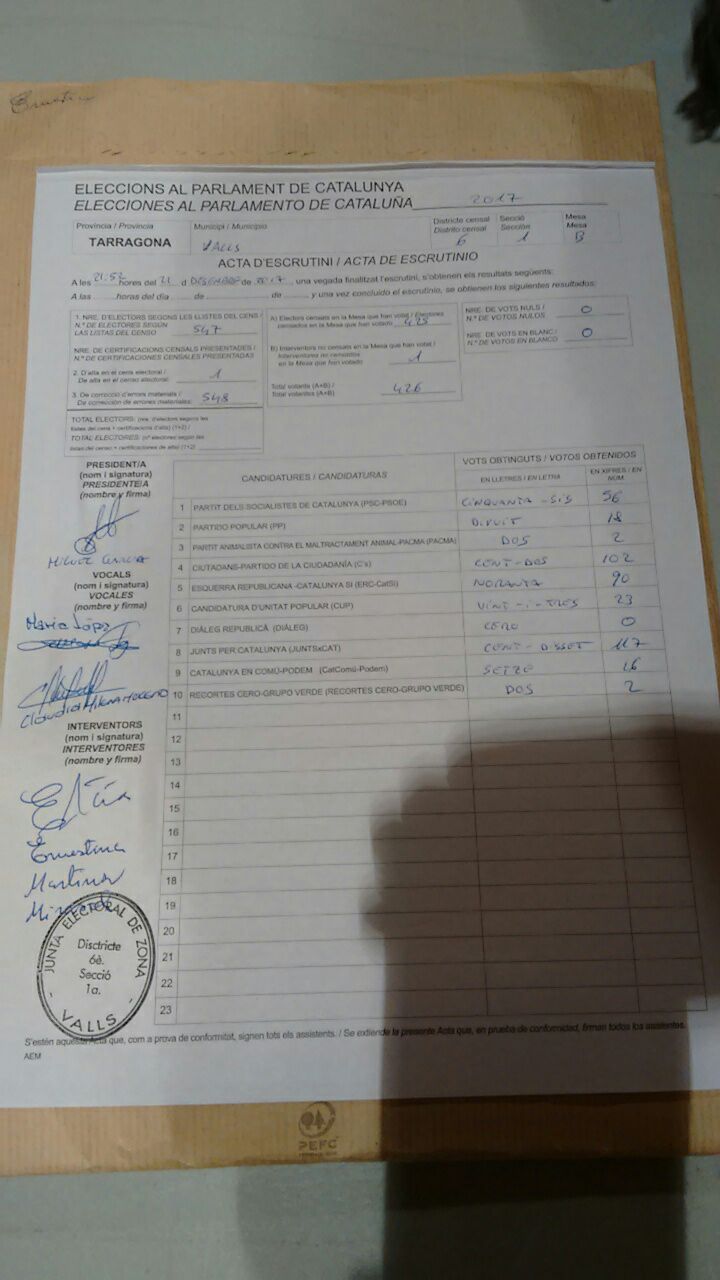 Ernestina
ELECCIONS AL PARLAMENT DE CATALUNYA
ELECCIONES AL PARLAMENTO DE CATALUÑA 2017
Provincia / Provincia
TARRAGONA
Municipi / Municipio
VALLS
Districte censal
Distrito censal
6
Secció
Sección
1
Mesa
Mesa
B
ACTA D'ESCRUTINI / ACTA DE ESCRUTINIO
A les 21:52 hores del 21 d DESEMBRE de 2017 una vegada finalitzat l'escrutini, s'obtenen els resultats següents:
A las horas del día de de y una vez concluido el escrutinio, se obtienen los siguientes resultados:
1. NRE. D'ELECTORS SEGONS LES LLISTES DEL CENS /
N.º DE ELECTORES SEGÚN
LAS LISTAS DEL CENSO 547
NRE. DE CERTIFICACIONS CENSALS PRESENTADES /
N.º DE CERTIFICACIONES CENSALES PRESENTADAS
2. D'alta en el cens electoral /
De alta en el censo electoral: 1
3. De correcció d'errors materials /
De corrección de errores materiales: 548
TOTAL ELECTORS: (nre. d'electors segons les
llistes del cens + certificacions d'alta) (1+2) /
TOTAL ELECTORES: (nº electores según las
listas del censo + certificaciones de alta) (1+2)
A) Electors censats en la Mesa que han votat / Electores
censados en la Mesa que han votado 425
B) Interventors no censats en la Mesa que han votat /
Interventores no censados
en la Mesa que han votado 1
Total votants (A+B) /
Total votantes (A+B) 426
NRE. DE VOTS NULS /
N.º DE VOTOS NULOS 0
NRE. DE VOTS EN BLANC /
N.º DE VOTOS EN BLANCO 0
PRESIDENT/A
(nom i signatura)
PRESIDENTE/A
(nombre y firma)
MIGUEL GARCIA
VOCALS
(nom i signatura)
VOCALES
(nombre y firma)
Maria López
Claudia Milena Moreno
INTERVENTORS
(nom i signatura)
INTERVENTORES
(nombre y firma)
Ernestina
Martinez
CANDIDATURES / CANDIDATURAS
VOTS OBTINGUTS / VOTOS OBTENIDOS
EN LLETRES / EN LETRA
EN XIFRES / EN NÚM.
1 PARTIT DELS SOCIALISTES DE CATALUNYA (PSC-PSOE) CINQUANTA-SIS 56
2 PARTIDO POPULAR (PP) DIVUIT 18
3 PARTIT ANIMALISTA CONTRA EL MALTRACTAMENT ANIMAL-PACMA (PACMA) DOS 2
4 CIUTADANS-PARTIDO DE LA CIUDADANÍA (C's) CENT-DOS 102
5 ESQUERRA REPUBLICANA -CATALUNYA SI (ERC-CatSI) NORANTA 90
6 CANDIDATURA D'UNITAT POPULAR (CUP) VINT-I-TRES 23
7 DIÀLEG REPUBLICÀ (DIÀLEG) CERO 0
8 JUNTS PER CATALUNYA (JUNTSxCAT) CENT-DISSET 117
9 CATALUNYA EN COMÚ-PODEM (CatComú-Podem) SETZE 16
10 RECORTES CERO-GRUPO VERDE (RECORTES CERO-GRUPO VERDE) DOS 2
11
12
13
14
15
16
17
18
19
20
21
22
23
JUNTA ELECTORAL DE ZONA
Disctricte
6è.
Secció
1a.
- VALLS -
S'estén aquesta Acta que, com a prova de conformitat, signen tots els assistents. / Se extiende la presente Acta que, en prueba de conformidad, firman todos los asistentes.
AEM
PEFC